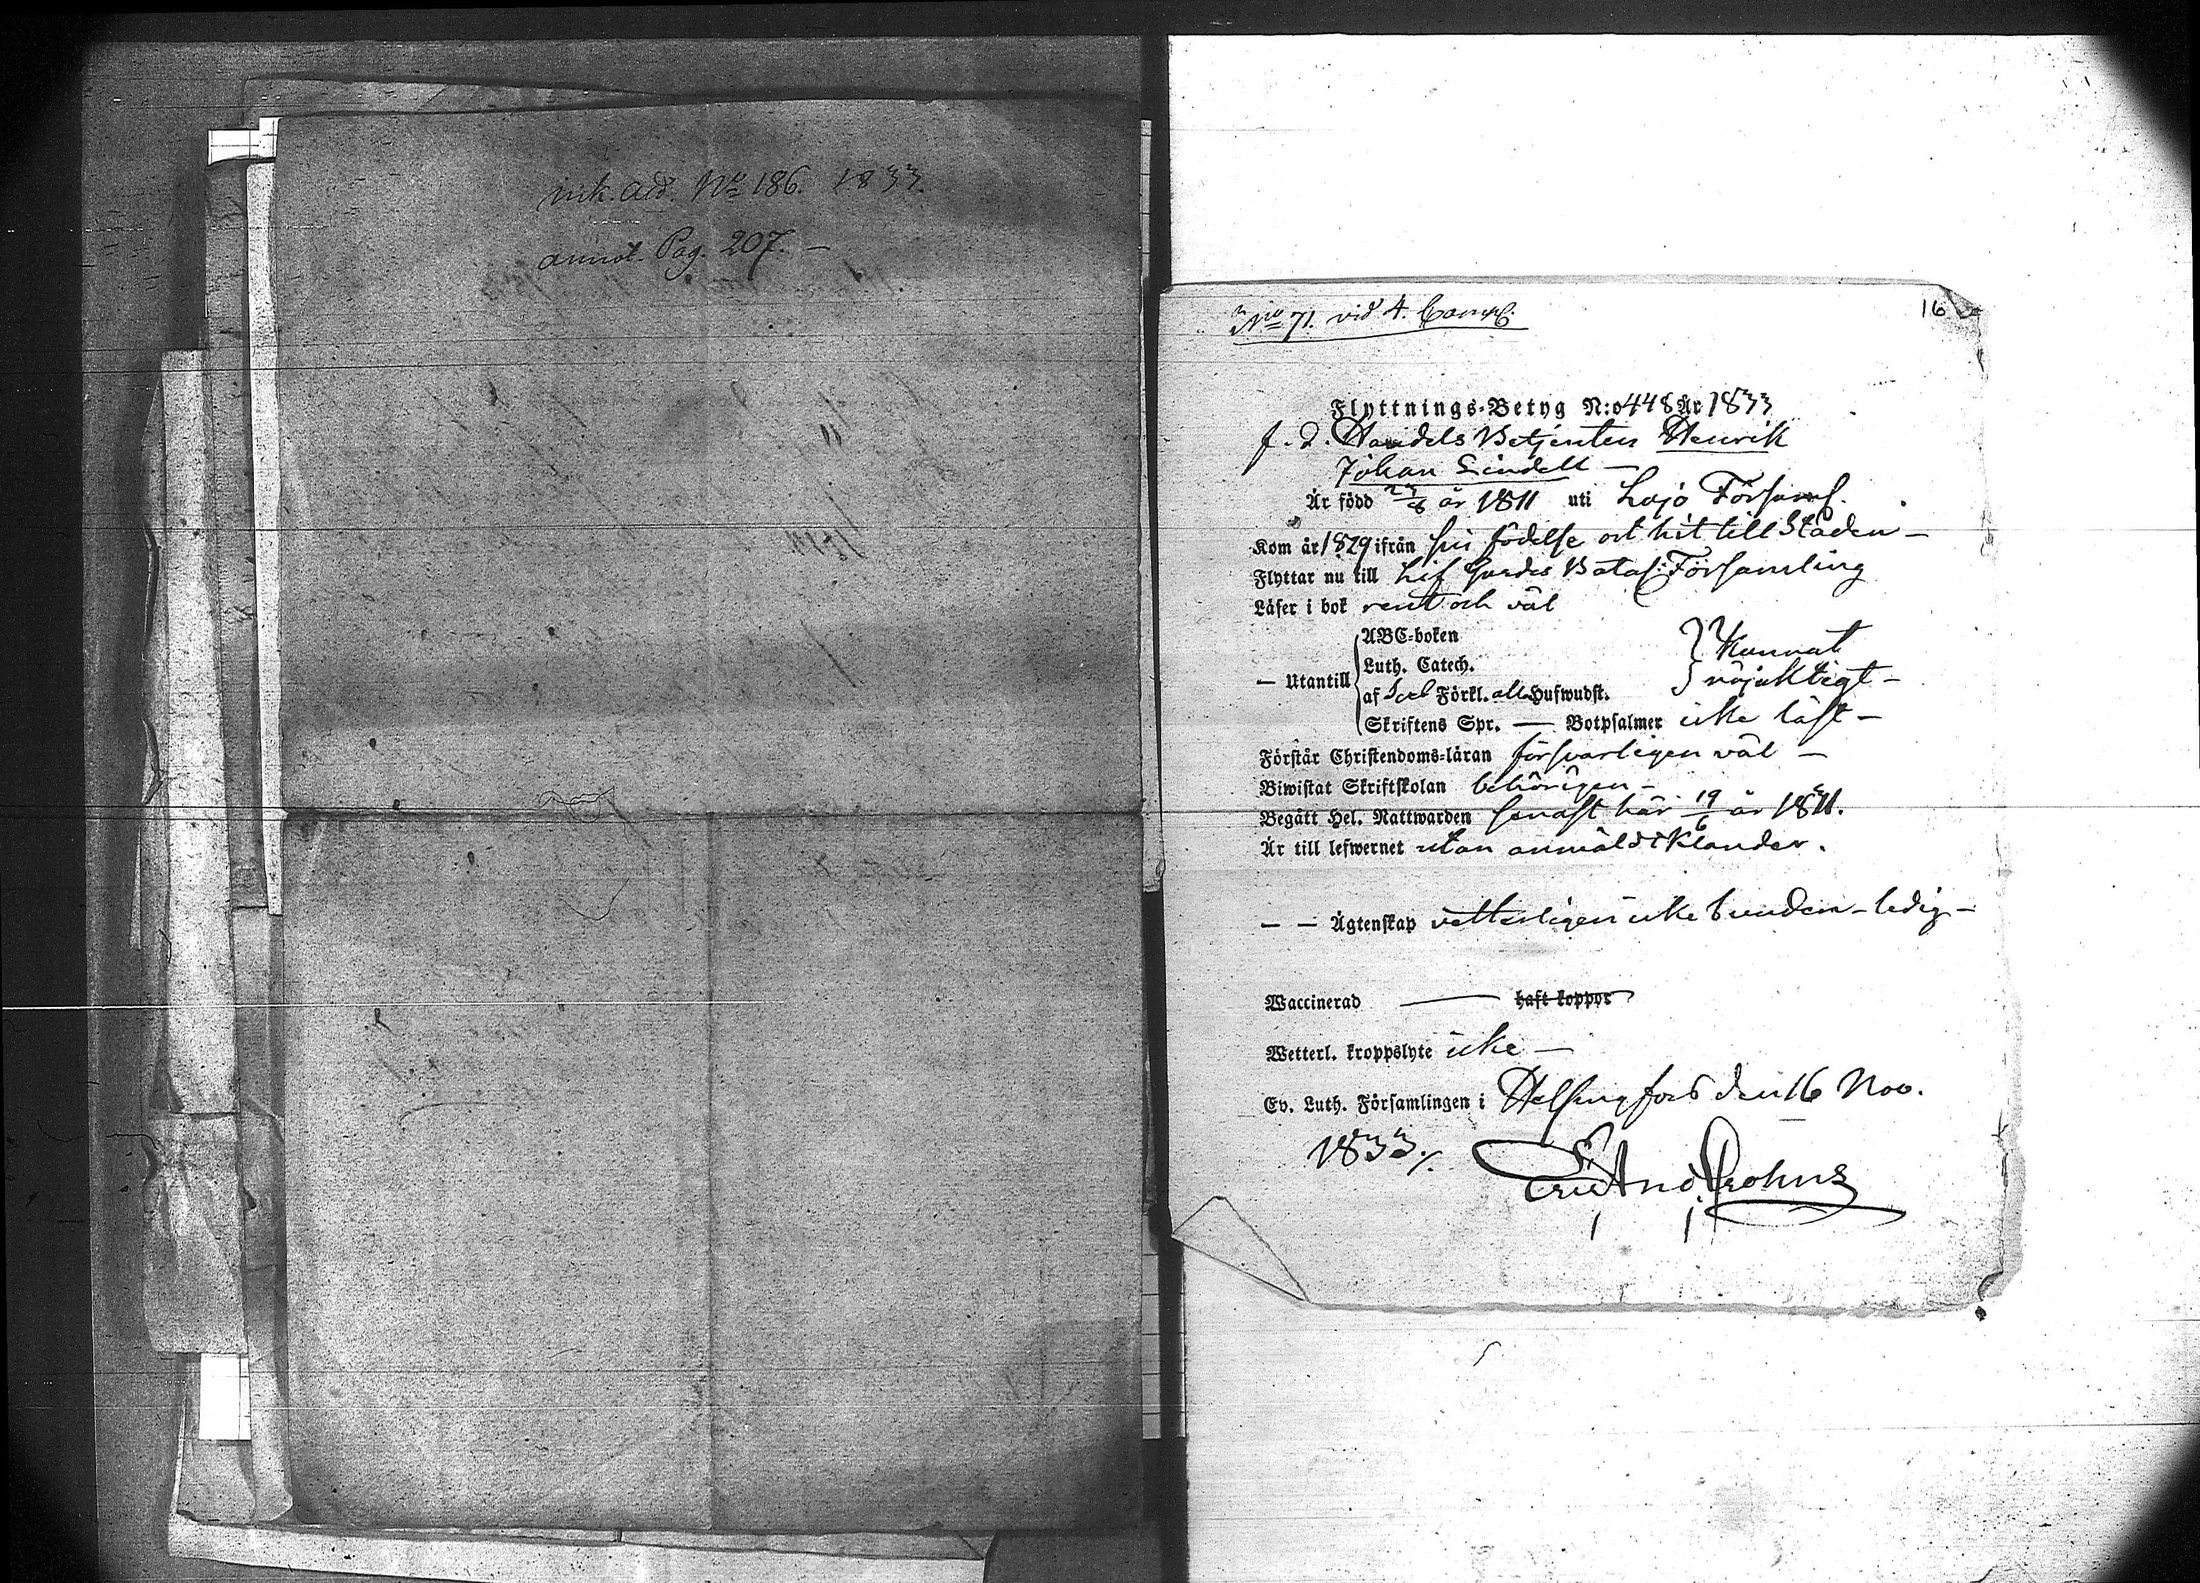 ink. att. No 186. 1833.
annot. Pag. 207. –
No 71. vid 4. Comp.
16
Flyttnings-Betyg N:o 448 År 1833
f. d. Handels Betjenten Henrik
Johan Lindell –
Är född 23/8 år 1811 uti Lojo Förſaml.
Kom år 1829 ifrån ſin födelſe ort hit till Staden –
Flyttar nu till Lif Gardes Batal: Förſamling
Läſer i bok rent och väl
ABC-boken
Luth. Catech.
– Utantill
af Sveb Förkl. alla Hufwudſt.
} Kunnat
} nöjaktigt –
Skriftens Spr. — Botpſalmer icke läſt –
Förſtår Christendoms-läran förſvarligen väl –
Biwiſtat Skriftſkolan behörigen –
Begått Hel. Nattwarden ſenaſt här 19/6 år
Är till lefwernet utan anmäldt klander.
– – Ägtenſkap vetterligen icke bunden – ledig –
Waccinerad — haft koppor
Wetterl. kroppslyte icke –
Ev. Luth. Förſamlingen i Helſingfors den 16 Nov.
1833./.
Eric And. Crohns